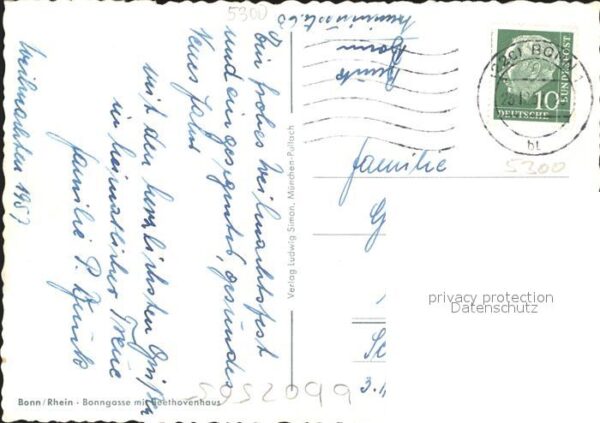 5300
Weihnachten 1957
Ein frohes Weihnachtsfest
und ein gesegnetes, gesundes
Neues Jahr
mit den herzlichsten Grüßen
in heimatlicher Treue
Familie P.
Bonn
(22c) BONN 1
bt
10
DEUTSCHE
BUNDESPOST
5300
Familie
Verlag Ludwig Simon, München-Pullach
privacy protection
Datenschutz
Bonn/Rhein - Bonngasse mit Beethovenhaus